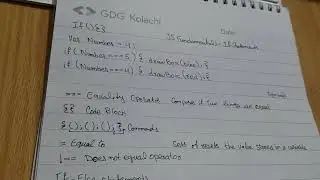 GDG Kolachi
Date:
If(){}
JS Fundamentals - If Statements
Var Number = 4;
if (Number===5) { drawBox(blue);}
if (Number===4) { drawBox(red);}
=== Equality Operator compares if two things are equal
{} Code Block
{();();();} Commands
= Equal to the value stores in a variable
!== Does not equal operator
If-Else statements